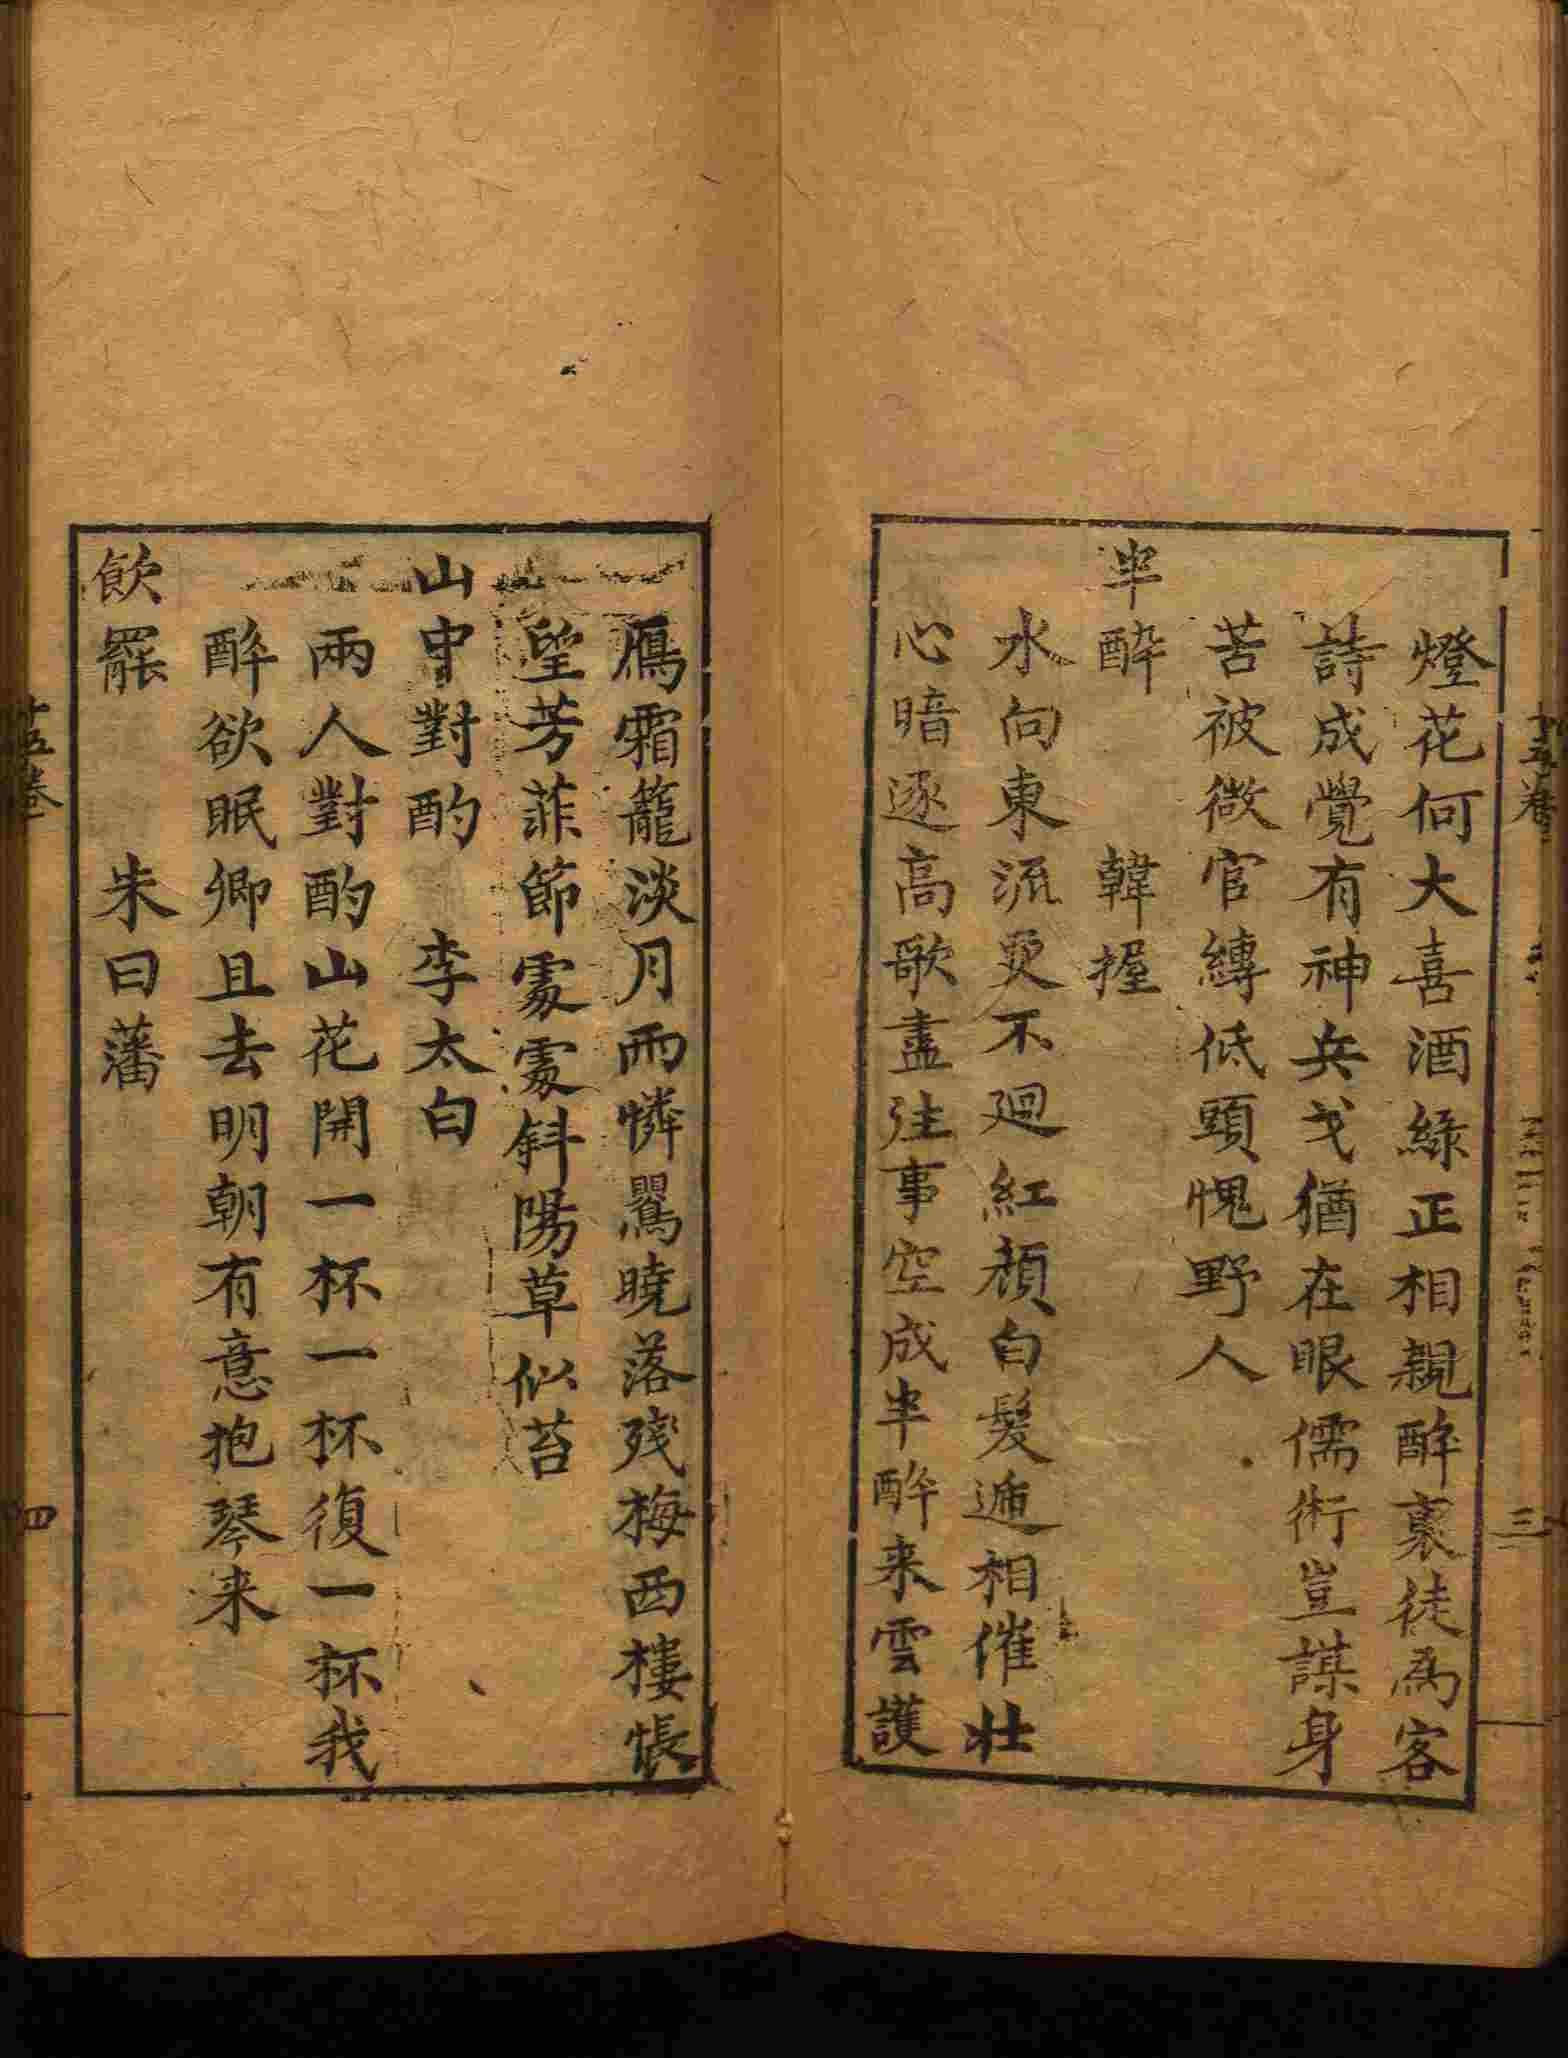 燈花何大喜酒綠正相親醉裏徒爲客
詩成覺有神兵戈猶在眼儒術豈謀身
苦被微官縛低頭愧野人
半醉 韓握
水向東流更不廻紅顏白髮遞相催壯
心暗逐高歌盡往事空成半醉来雲護
十五卷
三
雁霜籠淡月雨憐鸎曉落殘梅西樓悵
望芳菲節處處斜陽草似苔
山中對酌 李太白
兩人對酌山花開一杯一杯復一杯我
醉欲眠卿且去明朝有意抱琴来
飲罷 朱曰藩
十五卷
四